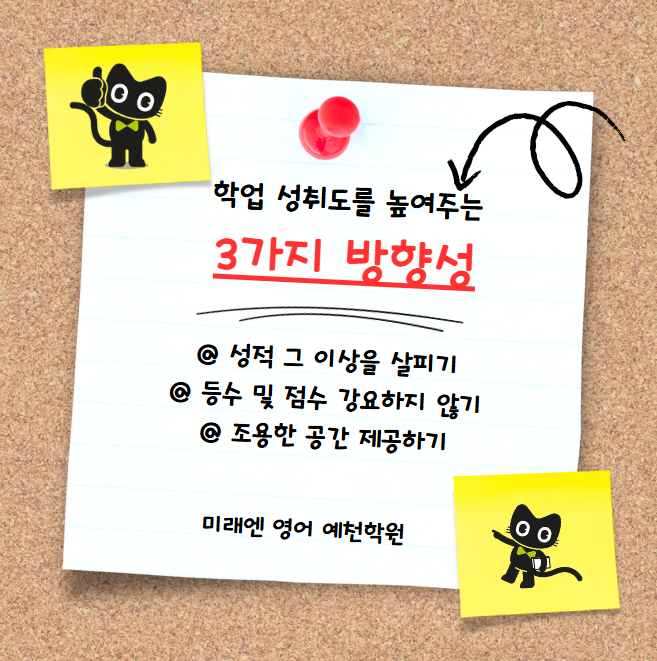 학업 성취도를 높여주는
3가지 방향성
@ 성적 그 이상을 살피기
@ 등수 및 점수 강요하지 않기
@ 조용한 공간 제공하기
미래엔 영어 예천학원